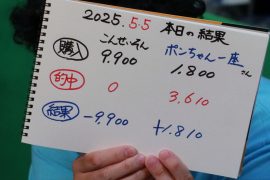 2025.5.5 本日の結果
こんせいぞん ポンちゃん一座さん
購入 9.900 1.800
的中 0 3.610
結果 -9,900 +1.810